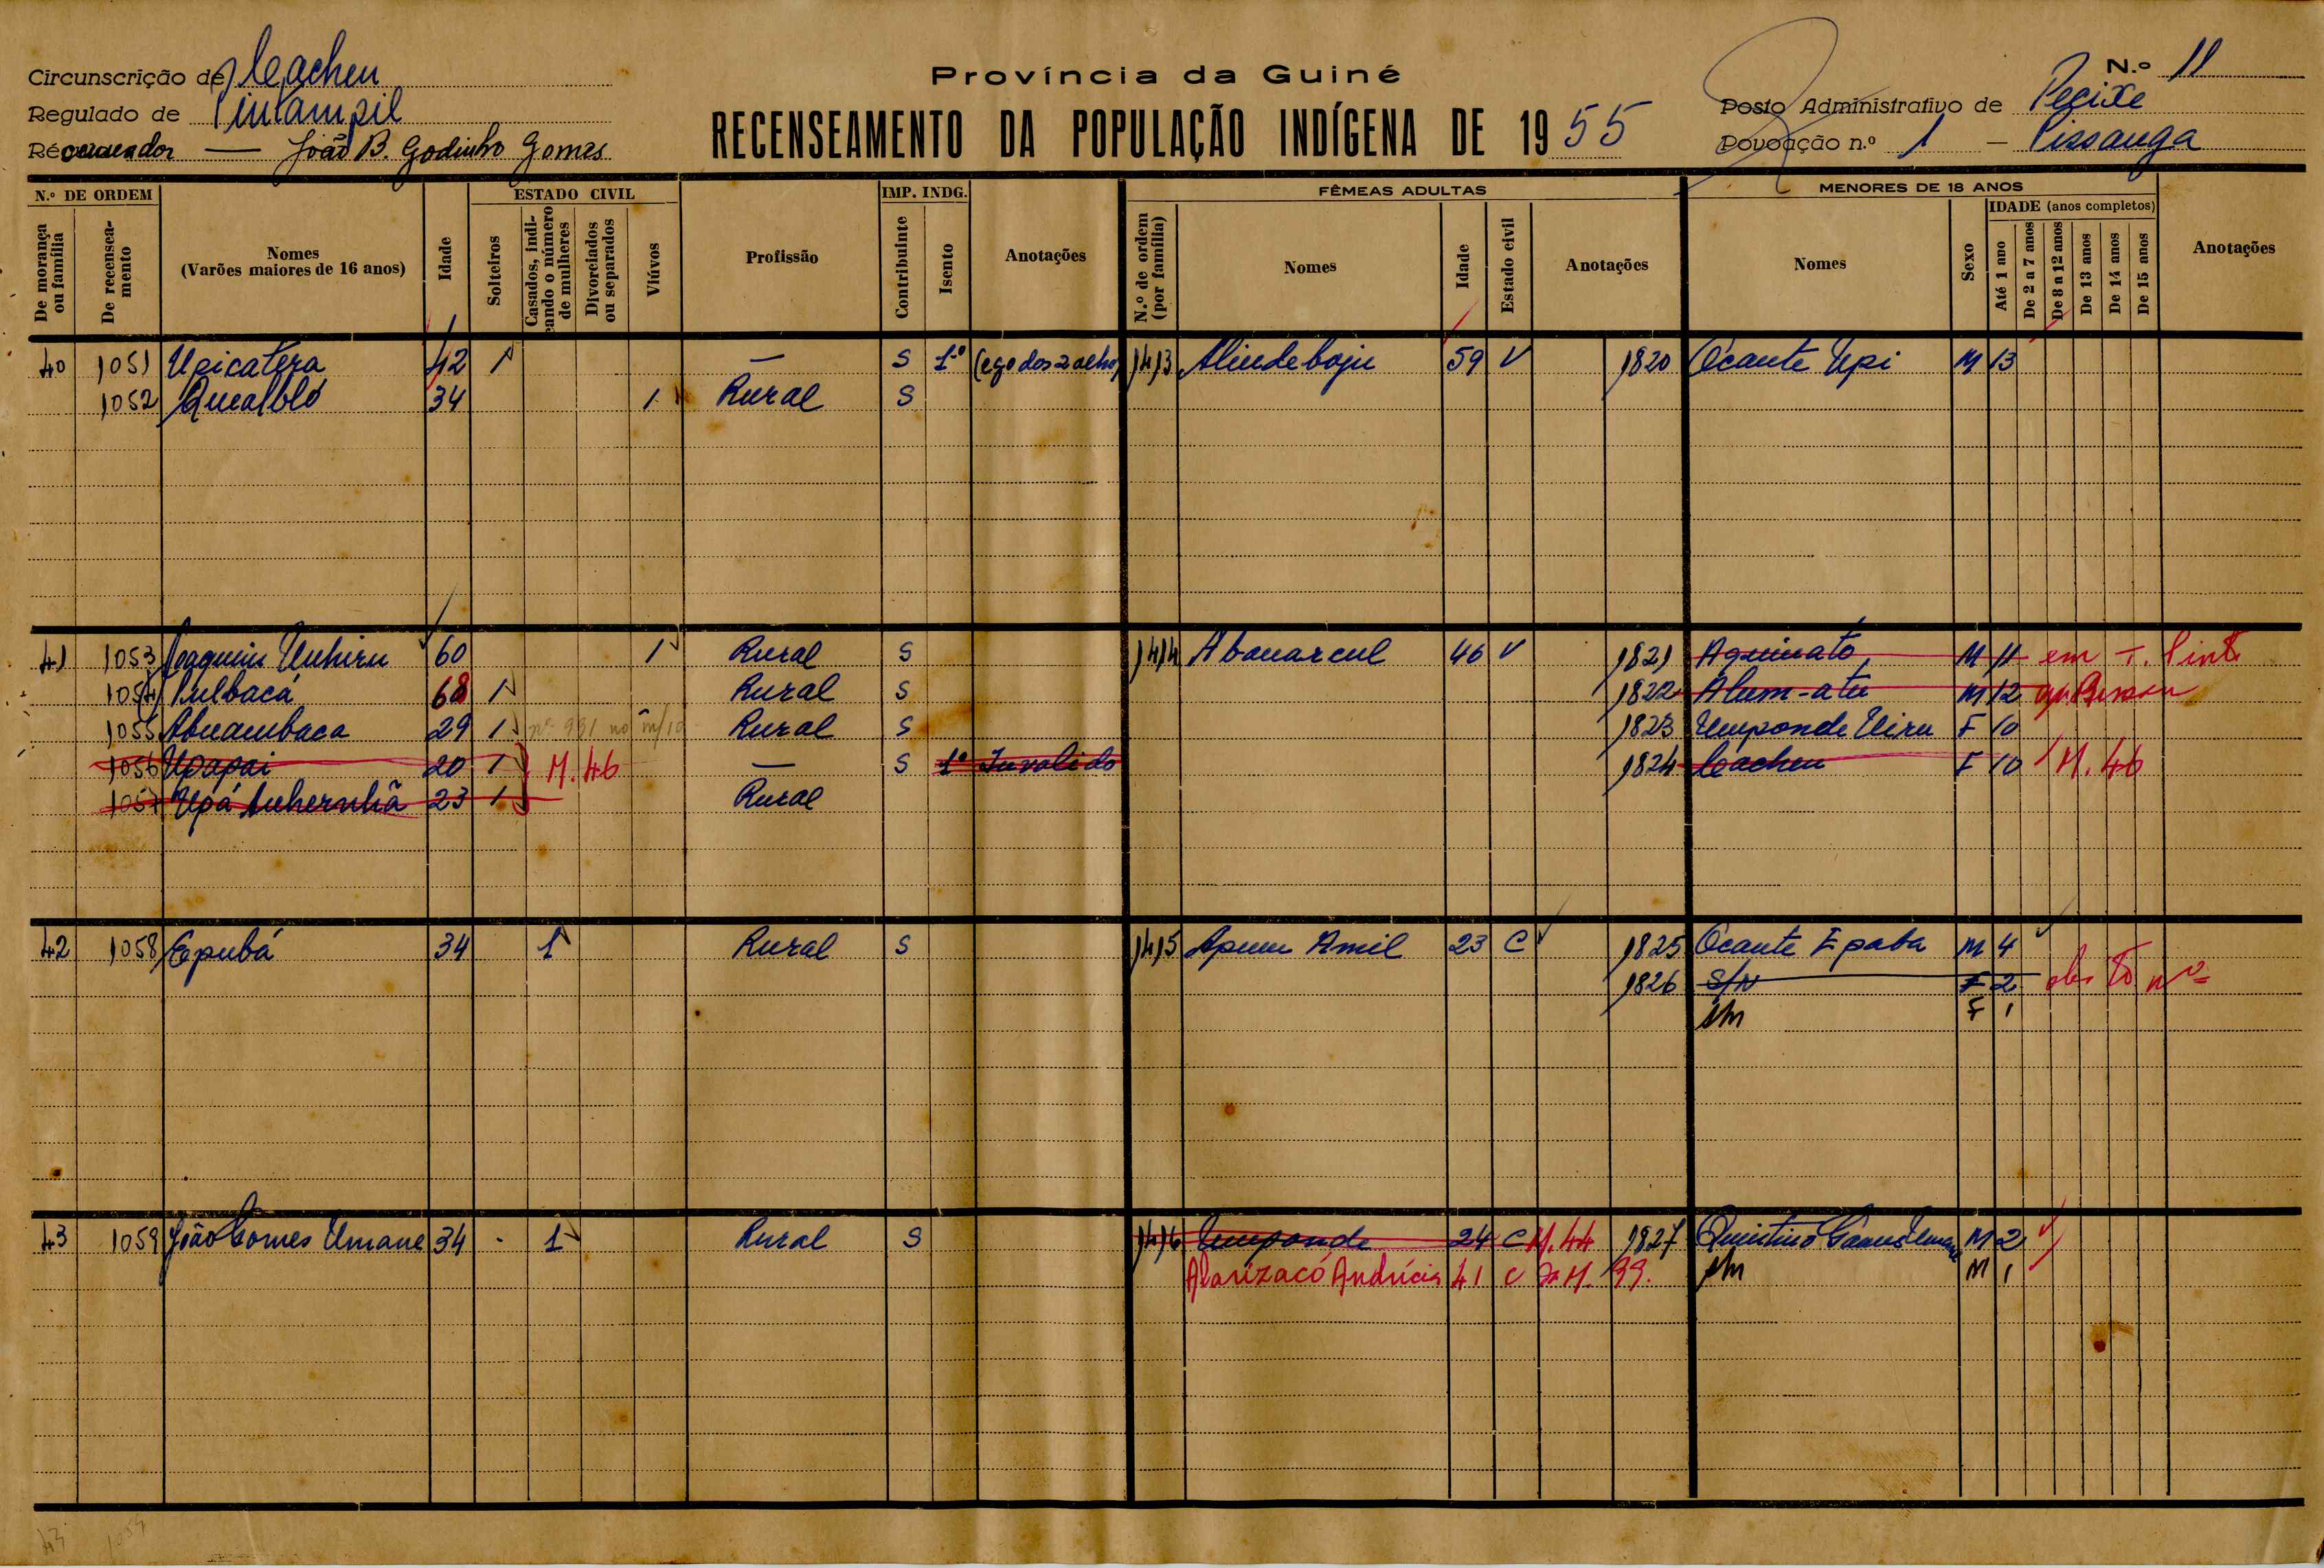 Província da Guiné
RECENSEAMENTO DA POPULAÇÃO INDÍGENA DE 1955
Circunscrição de Cacheu
Regulado de Pintampil
Recenseador — João B. Godinho Gomes
N.º 11
Posto Administrativo de Pecixe
Povoação n.º 1 – Pissanga
N.º DE ORDEM
De morança ou família
De recensea-mento
Nomes (Varões maiores de 16 anos)
Idade
ESTADO CIVIL
Solteiros
Casados, indi-cando o número de mulheres
Divorciados ou separados
Viúvos
Profissão
IMP. INDG.
Contribuinte
Isento
Anotações
FÊMEAS ADULTAS
N.º de ordem (por família)
Nomes
Idade
Estado civil
Anotações
MENORES DE 18 ANOS
Nomes
Sexo
IDADE (anos completos)
Até 1 ano
De 2 a 7 anos
De 8 a 12 anos
De 13 anos
De 14 anos
De 15 anos
Anotações
40 1051 Upicatera 42 1 — S 1º Cego dos 2 olhos 1413 Alindeboju 59 V 1820 Ocante Upi M 13
1052 Quealbló 34 1 Rural S
41 1053 Joaquim Unhiru 60 1 Rural S 1414 Abanarcul 46 V 1821 Aquinato M 11 em T. Pint
1054 Pulbacá 68 1 Rural S 1822 Alum-atu M 12 Bissau
1055 Abuambaca 29 1 nº 991 Rural S 1823 Umponde Uiru F 10
1056 Upapai 20 1 M. 46 — S 1º Invalido 1824 Cacheu F 10 M. 46
1057 Upá 23 1 Rural
42 1058 Epubá 34 1 Rural S 1415 Apum Amil 23 C 1825 Ocante Epaba M 4
1826 S/N F 2
s/n F 1
43 1059 João Gomes Umane 34 1 Rural S 1416 Umponde 24 C M. 44 1827 Quintino Gomes Umane M 2
Alarizacó Andrícia 41 C da M. 99. s/n M 1
43 1059